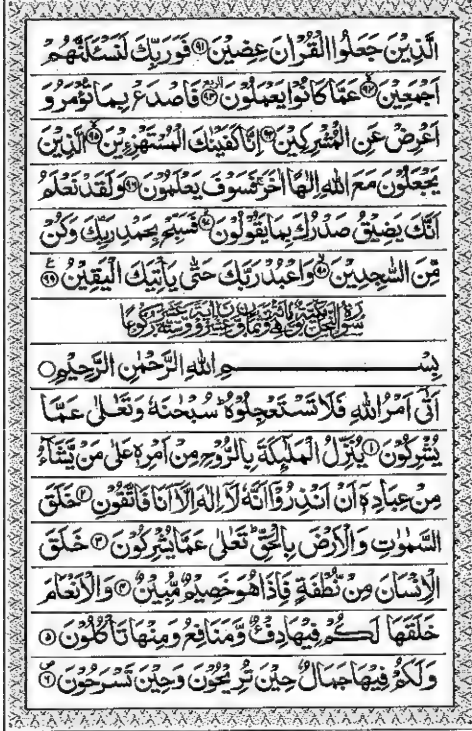 الَّذِيْنَ جَعَلُوا الْقُرْاٰنَ عِضِيْنَ ۝۹۱ فَوَرَبِّكَ لَنَسْـَٔلَنَّهُمْ
اَجْمَعِيْنَ ۝۹۲ عَمَّا كَانُوْا يَعْمَلُوْنَ ۝۹۳ فَاصْدَعْ بِمَا تُؤْمَرُ وَ
اَعْرِضْ عَنِ الْمُشْرِكِيْنَ ۝۹۴ اِنَّا كَفَيْنٰكَ الْمُسْتَهْزِءِيْنَ ۝۹۵ الَّذِيْنَ
يَجْعَلُوْنَ مَعَ اللّٰهِ اِلٰهًا اٰخَرَ ۚ فَسَوْفَ يَعْلَمُوْنَ ۝۹۶ وَلَقَدْ نَعْلَمُ
اَنَّكَ يَضِيْقُ صَدْرُكَ بِمَا يَقُوْلُوْنَ ۝۹۷ فَسَبِّحْ بِحَمْدِ رَبِّكَ وَكُنْ
مِّنَ السّٰجِدِيْنَ ۝۹۸ وَاعْبُدْ رَبَّكَ حَتّٰى يَاْتِيَكَ الْيَقِيْنُ ۝۹۹
سُوْرَةُ النَّحْلِ مَكِّيَّةٌ وَّهِيَ مِائَةٌ وَّثَمَانٍ وَّعِشْرُوْنَ اٰيَةً وَّسِتَّةَ عَشَرَ رُكُوْعًا
بِسْمِ اللّٰهِ الرَّحْمٰنِ الرَّحِيْمِ ۝
اَتٰٓى اَمْرُ اللّٰهِ فَلَا تَسْتَعْجِلُوْهُ ؕ سُبْحٰنَهٗ وَتَعٰلٰى عَمَّا
يُشْرِكُوْنَ ۝۱ يُنَزِّلُ الْمَلٰٓئِكَةَ بِالرُّوْحِ مِنْ اَمْرِهٖ عَلٰى مَنْ يَّشَآءُ
مِنْ عِبَادِهٖٓ اَنْ اَنْذِرُوْٓا اَنَّهٗ لَآ اِلٰهَ اِلَّآ اَنَا فَاتَّقُوْنِ ۝۲ خَلَقَ
السَّمٰوٰتِ وَالْاَرْضَ بِالْحَقِّ ؕ تَعٰلٰى عَمَّا يُشْرِكُوْنَ ۝۳ خَلَقَ
الْاِنْسَانَ مِنْ نُّطْفَةٍ فَاِذَا هُوَ خَصِيْمٌ مُّبِيْنٌ ۝۴ وَالْاَنْعَامَ
خَلَقَهَا ۚ لَكُمْ فِيْهَا دِفْءٌ وَّمَنَافِعُ وَمِنْهَا تَاْكُلُوْنَ ۝۵
وَلَكُمْ فِيْهَا جَمَالٌ حِيْنَ تُرِيْحُوْنَ وَحِيْنَ تَسْرَحُوْنَ ۝۶